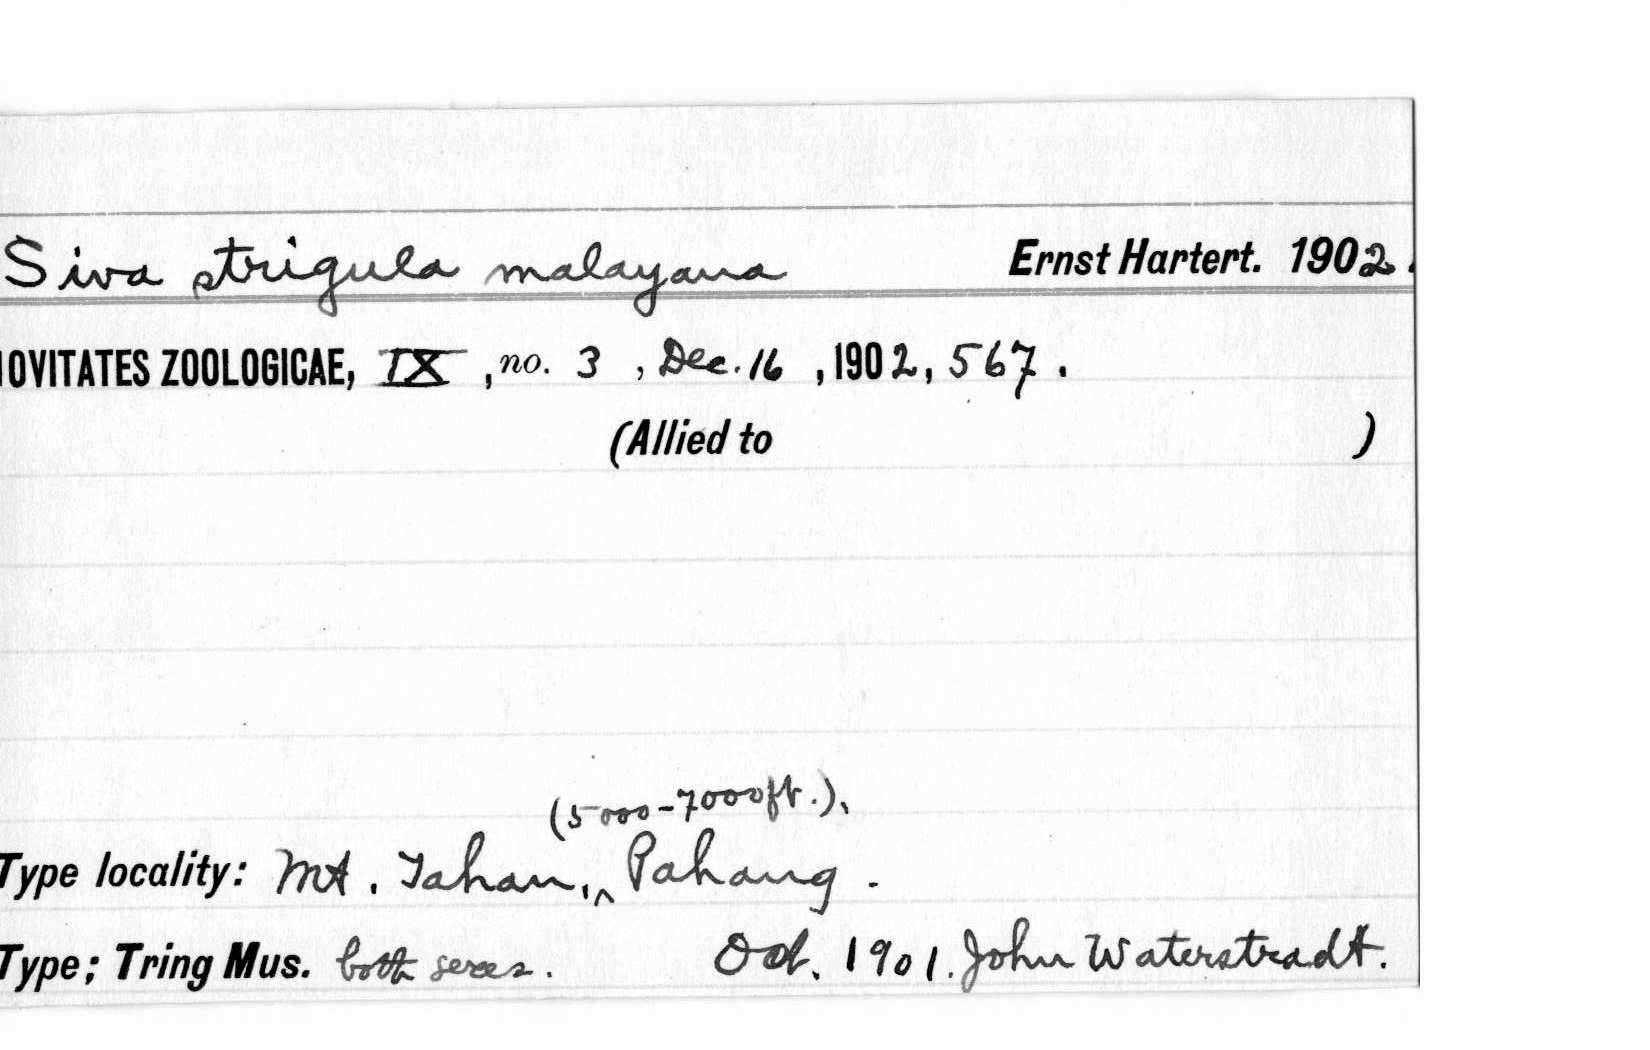 Siva strigula malayana Ernst Hartert. 1902.
OVITATES ZOOLOGICAE, IX, no. 3, Dec. 16, 1902, 567.
(Allied to )
(5000-7000ft.),
Type locality: Mt. Tahan,^ Pahang.
Type; Tring Mus. both sexes. Oct. 1901. John Waterstradt.